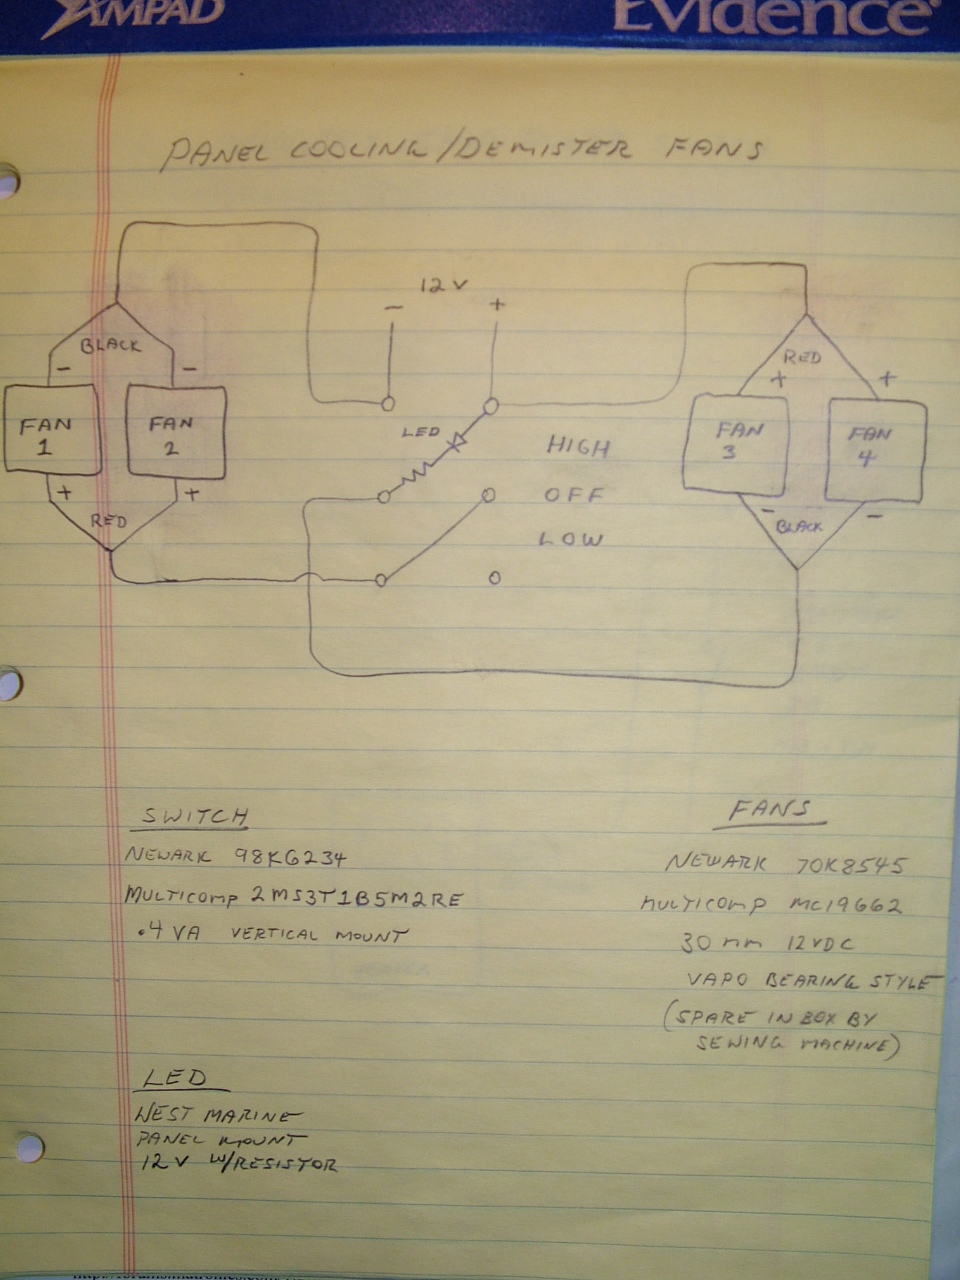 AMPAD
Evidence®
PANEL COOLING/DEMISTER FANS
12 V
- +
BLACK
- -
FAN 1
FAN 2
+ +
RED
LED
HIGH
OFF
LOW
RED
+ +
FAN 3
FAN 4
- -
BLACK
SWITCH
NEWARK 98K6234
MULTICOMP 2MS3T1B5M2RE
.4 VA VERTICAL MOUNT
FANS
NEWARK 70K8545
MULTICOMP MC19662
30 mm 12VDC
VAPO BEARING STYLE
(SPARE IN BOX BY
SEWING MACHINE)
LED
WEST MARINE
PANEL MOUNT
12 V W/RESISTOR